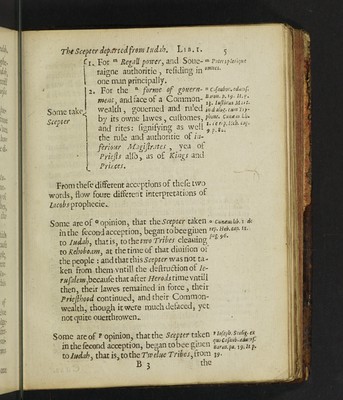 The Scepter departed from Iudah. LIB. I. 5
1. For Regall power, and Soue-
raigne authoritie, residing in
one man principally.
2. For the forme of gouern-
ment, and face of a Common-
wealth, gouerned and ruled
by its owne lawes, customes,
and rites: signifying as well
the rule and authoritie of in-
feriour Magistrates, yea of
Priests also, as of Kings and
Princes.
Some take
Scepter
From these different acceptions of these two
words, flow foure different interpretations of
Iacobs prophecie.
Some are of opinion, that the Scepter taken
in the second acception, began to bee giuen
to Iudah, that is, to the two Tribes cleauing
to Rehoboam, at the time of that diuision of
the people: and that this Scepter was not ta-
ken from them vntill the destruction of Ie-
rusalem, because that after Herods time vntill
then, their lawes remained in force, their
Priesthood continued, and their Common-
wealth, though it were much defaced, yet
not quite ouerthrowen.
Some are of opinion, that the Scepter taken
in the second acception, began to bee giuen
to Iudah, that is, to the Twelue Tribes, from
B 3 the